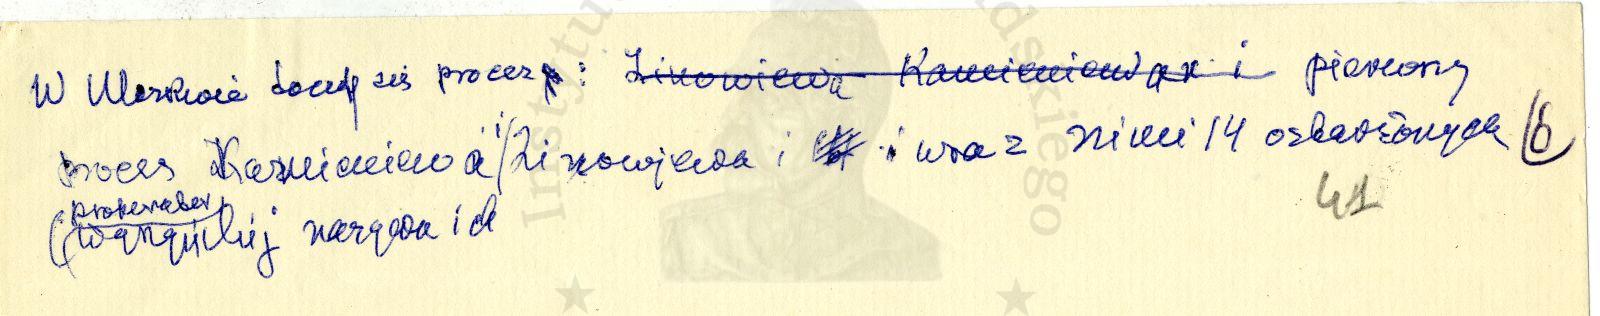 W Moskwie toczy się proces: Zinowiewa Kamieniewa i pierwszy
proces Kamieniewa i Zinowjewa i i wraz z nimi 14 oskarżonych 6
41
prokurator
( nazywa ich
Instytu
dskiego